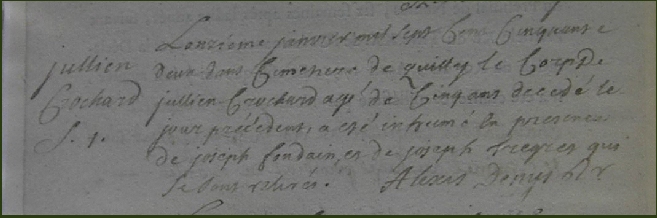 Lonzieme janvier mil sept Cens Cinquante
jullien
deux dans Cimetiere de quilly le Corps de
Crochard
jullien Crochard agé de Cinq ans decedé le
S. 1.
jour précédent, a eté inhumé En presence
de joseph et de joseph qui
se sont retirés. Alexis Denys